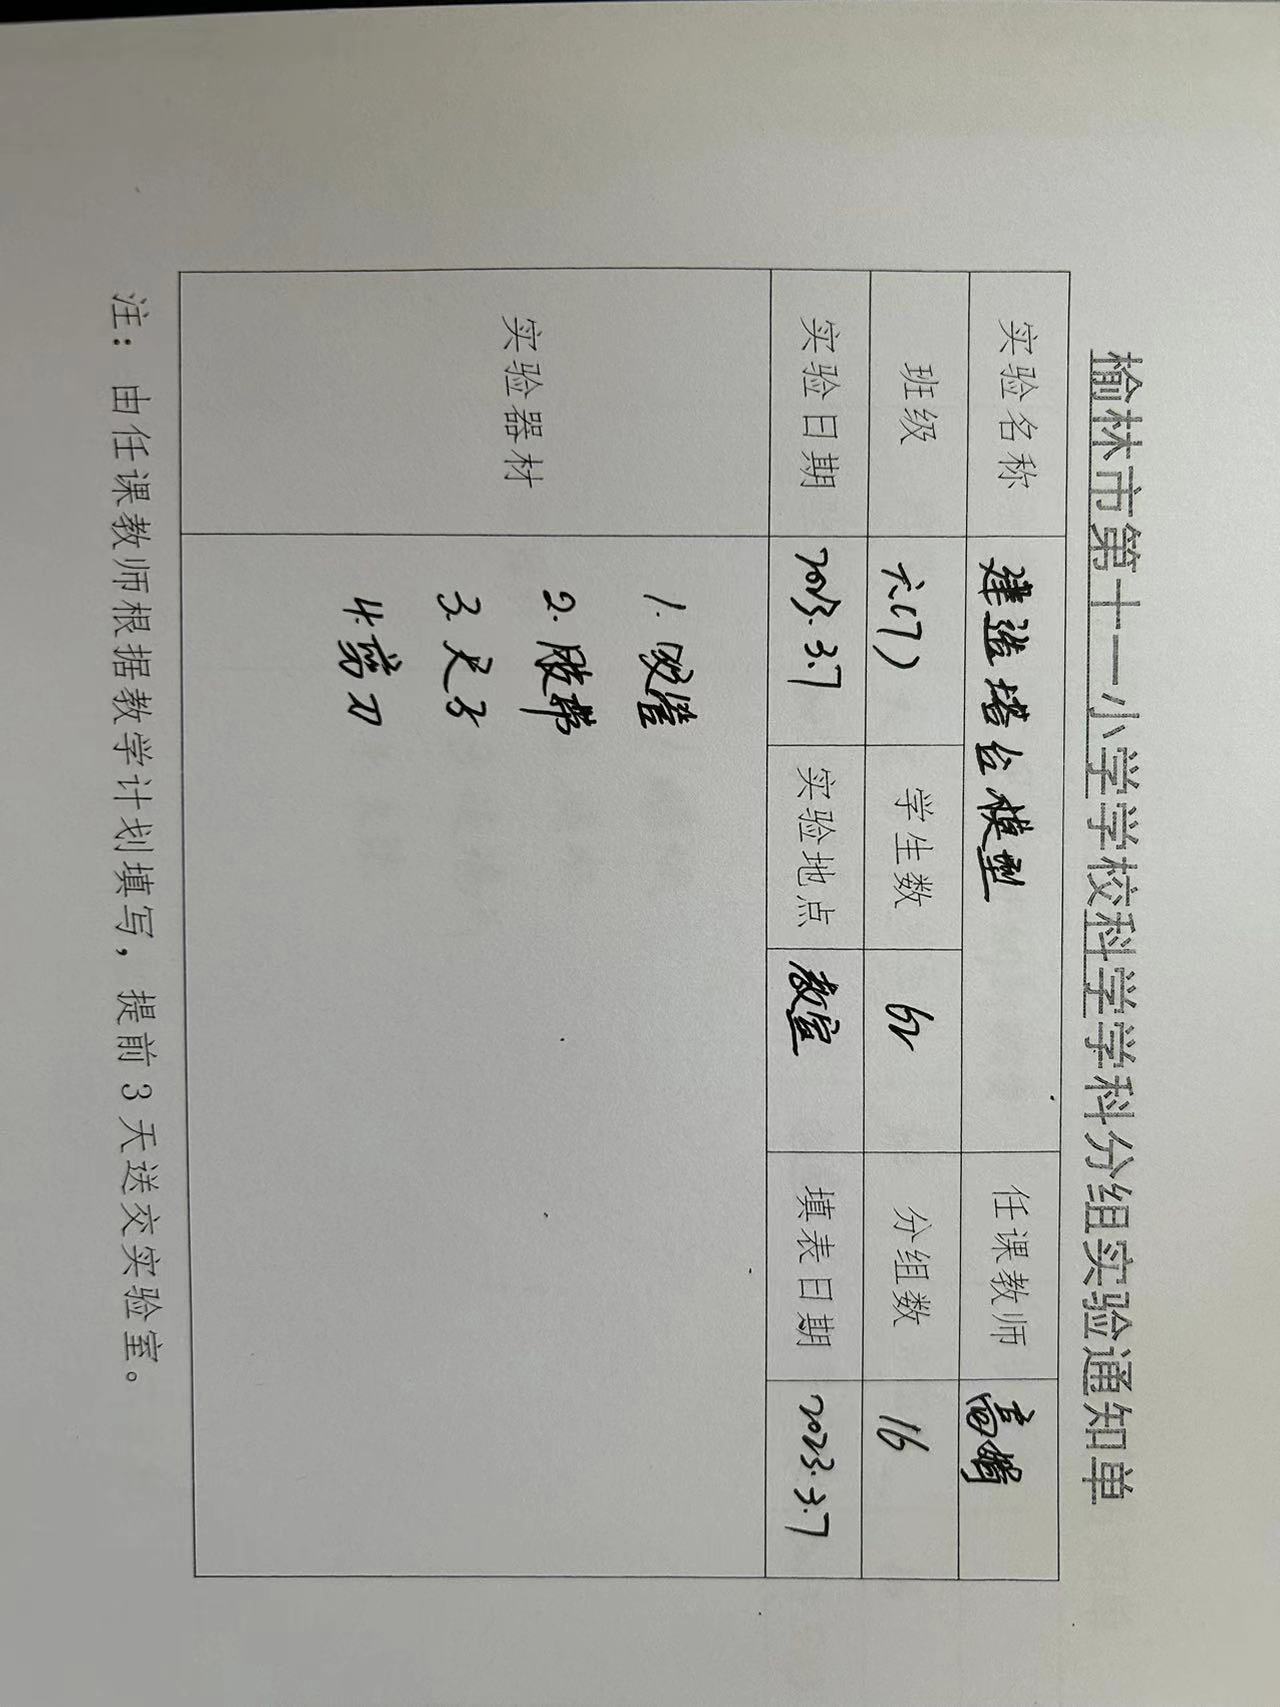 榆林市第十一小学学校科学学科分组实验通知单
实验名称 建造塔台模型 任课教师 高娟
班级 六(7) 学生数 62 分组数 16
实验日期 2023.3.7 实验地点 教室 填表日期 2023.3.7
实验器材
1.吸管
2.胶带
3.尺子
4.剪刀
注：由任课教师根据教学计划填写，提前3天送交实验室。